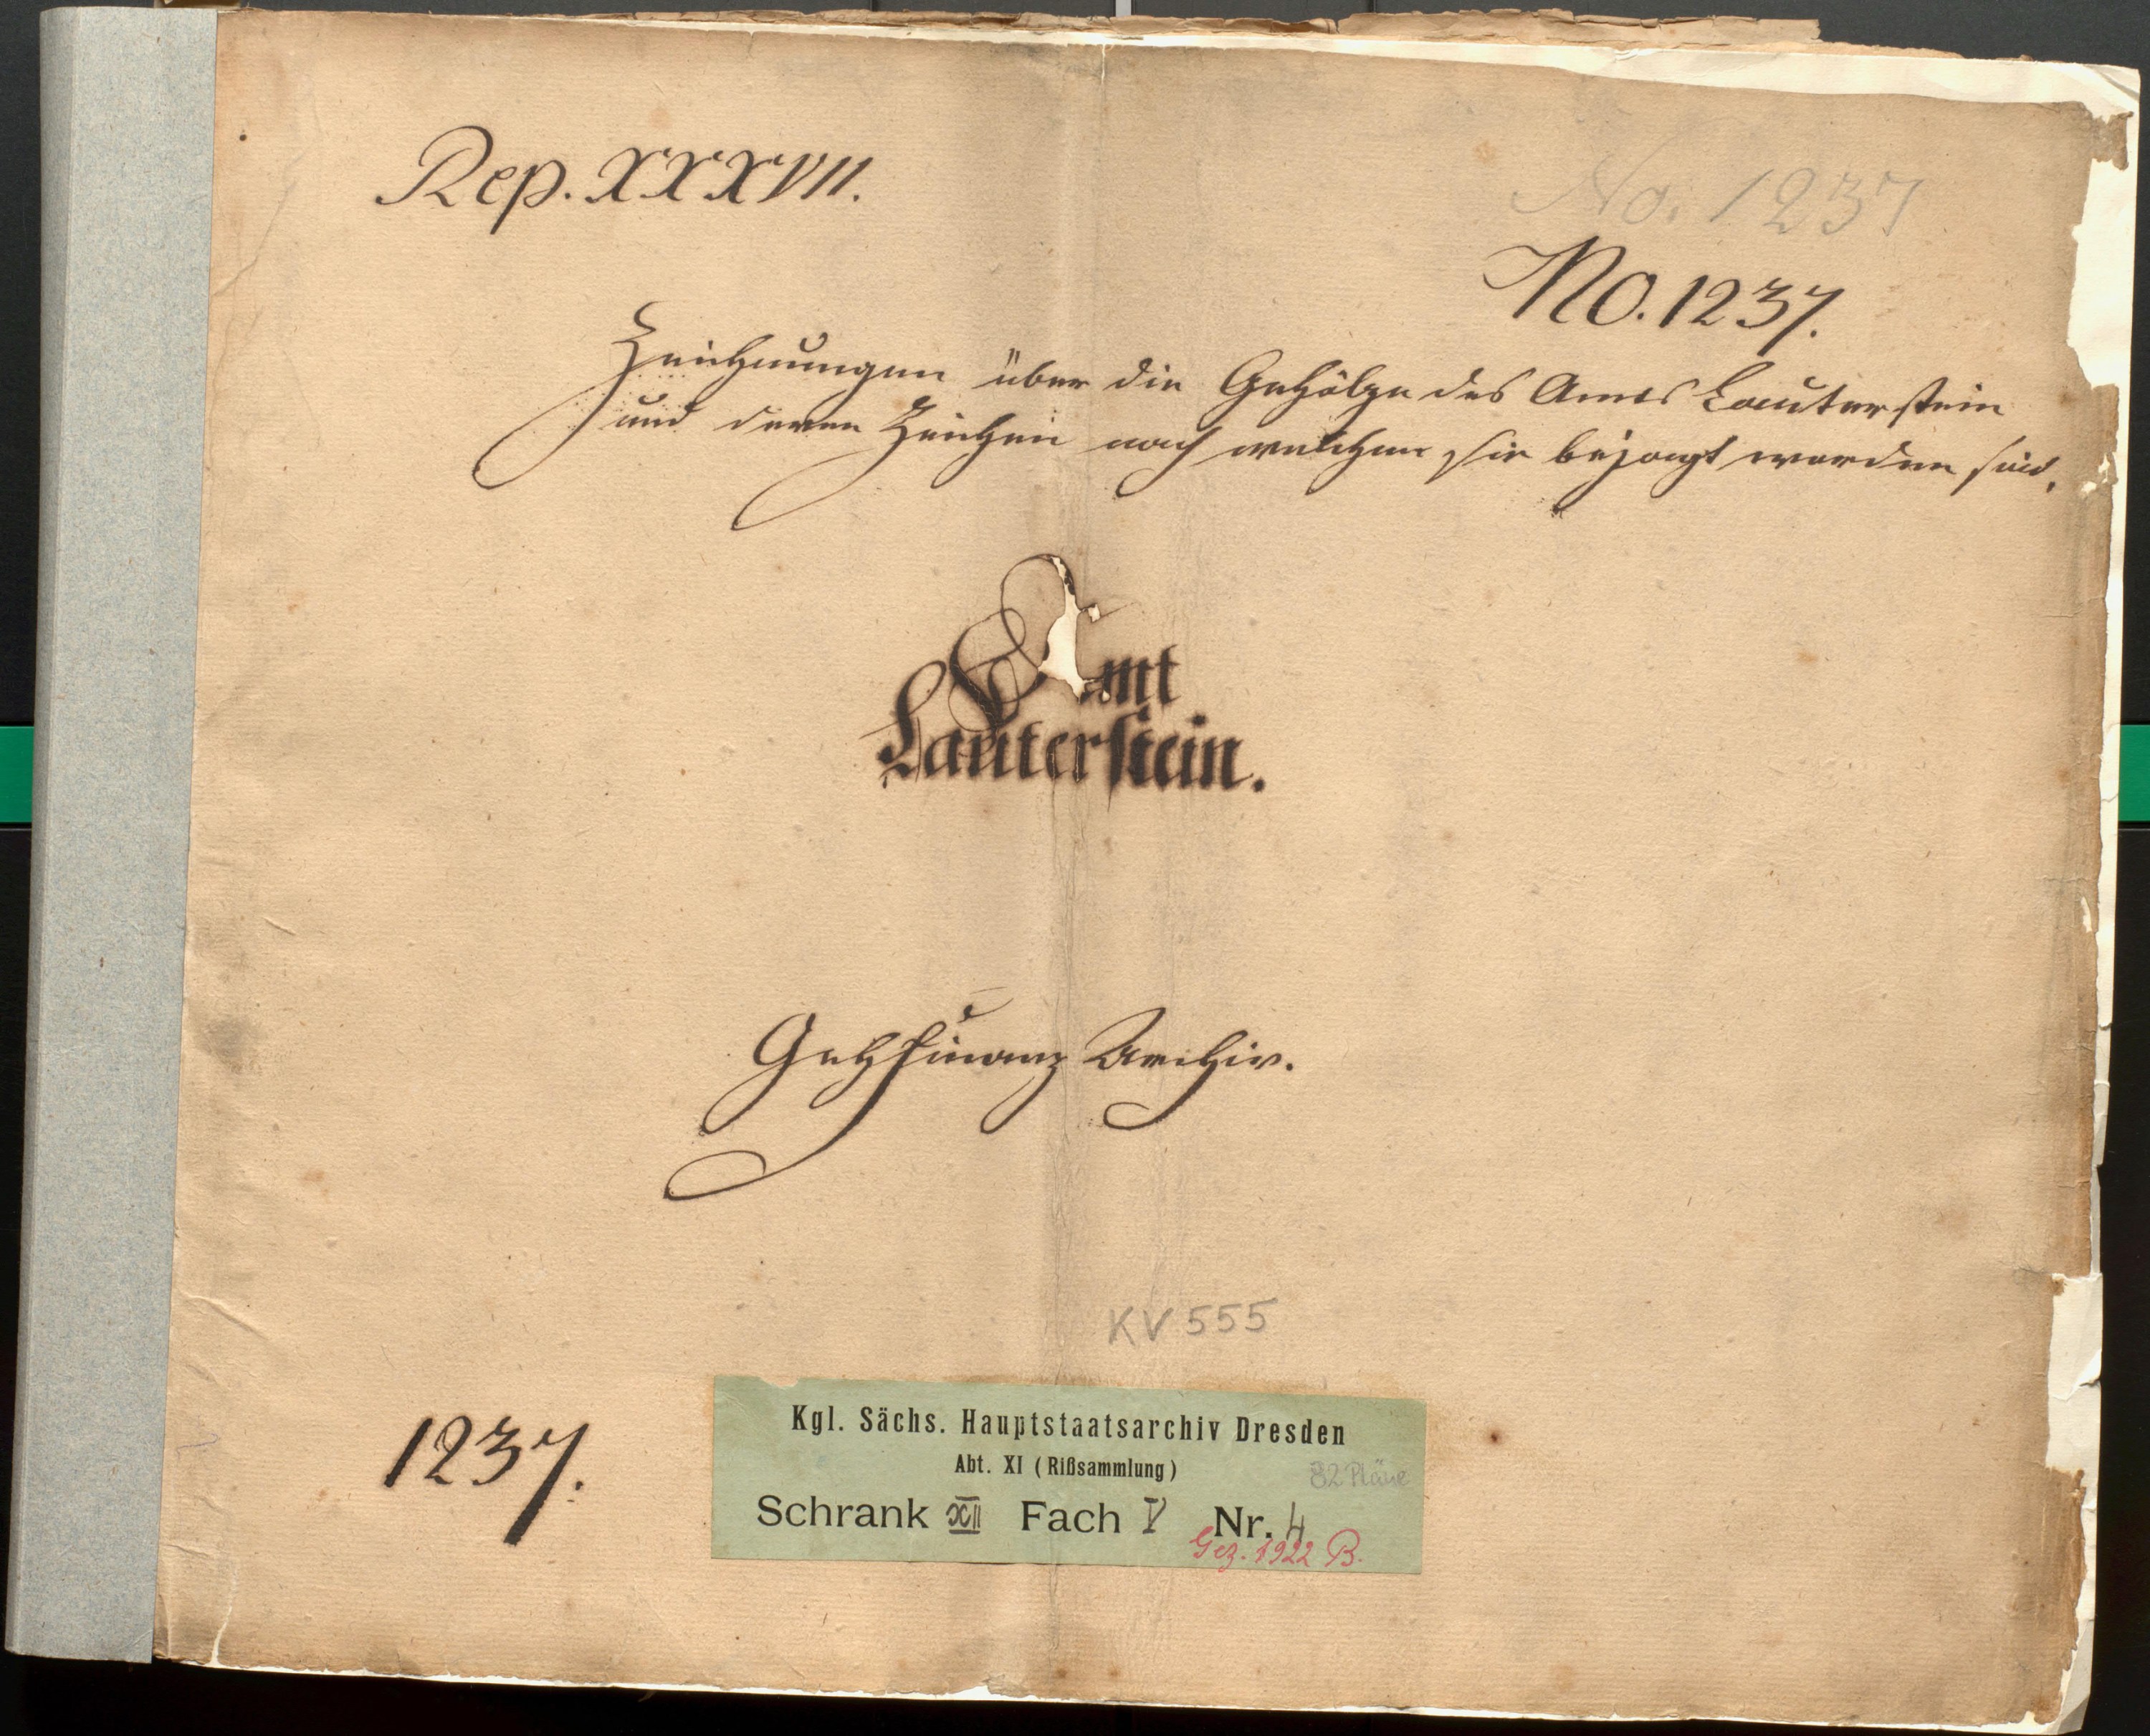 Rep. XXXVII.
No. 1237
No. 1237.
Zeichnungen über die Gehölze des Amts Lauterstein
und deren Zeichen nach welchen sie bejagt worden sind.
Amt
Lauterstein.
Geh Finanz Archiv.
KV 555
1237.
Kgl. Sächs. Hauptstaatsarchiv Dresden
Abt. XI (Rißsammlung)
82 Pläne
Schrank XII Fach V Nr. 4
Gez. 1922 B.